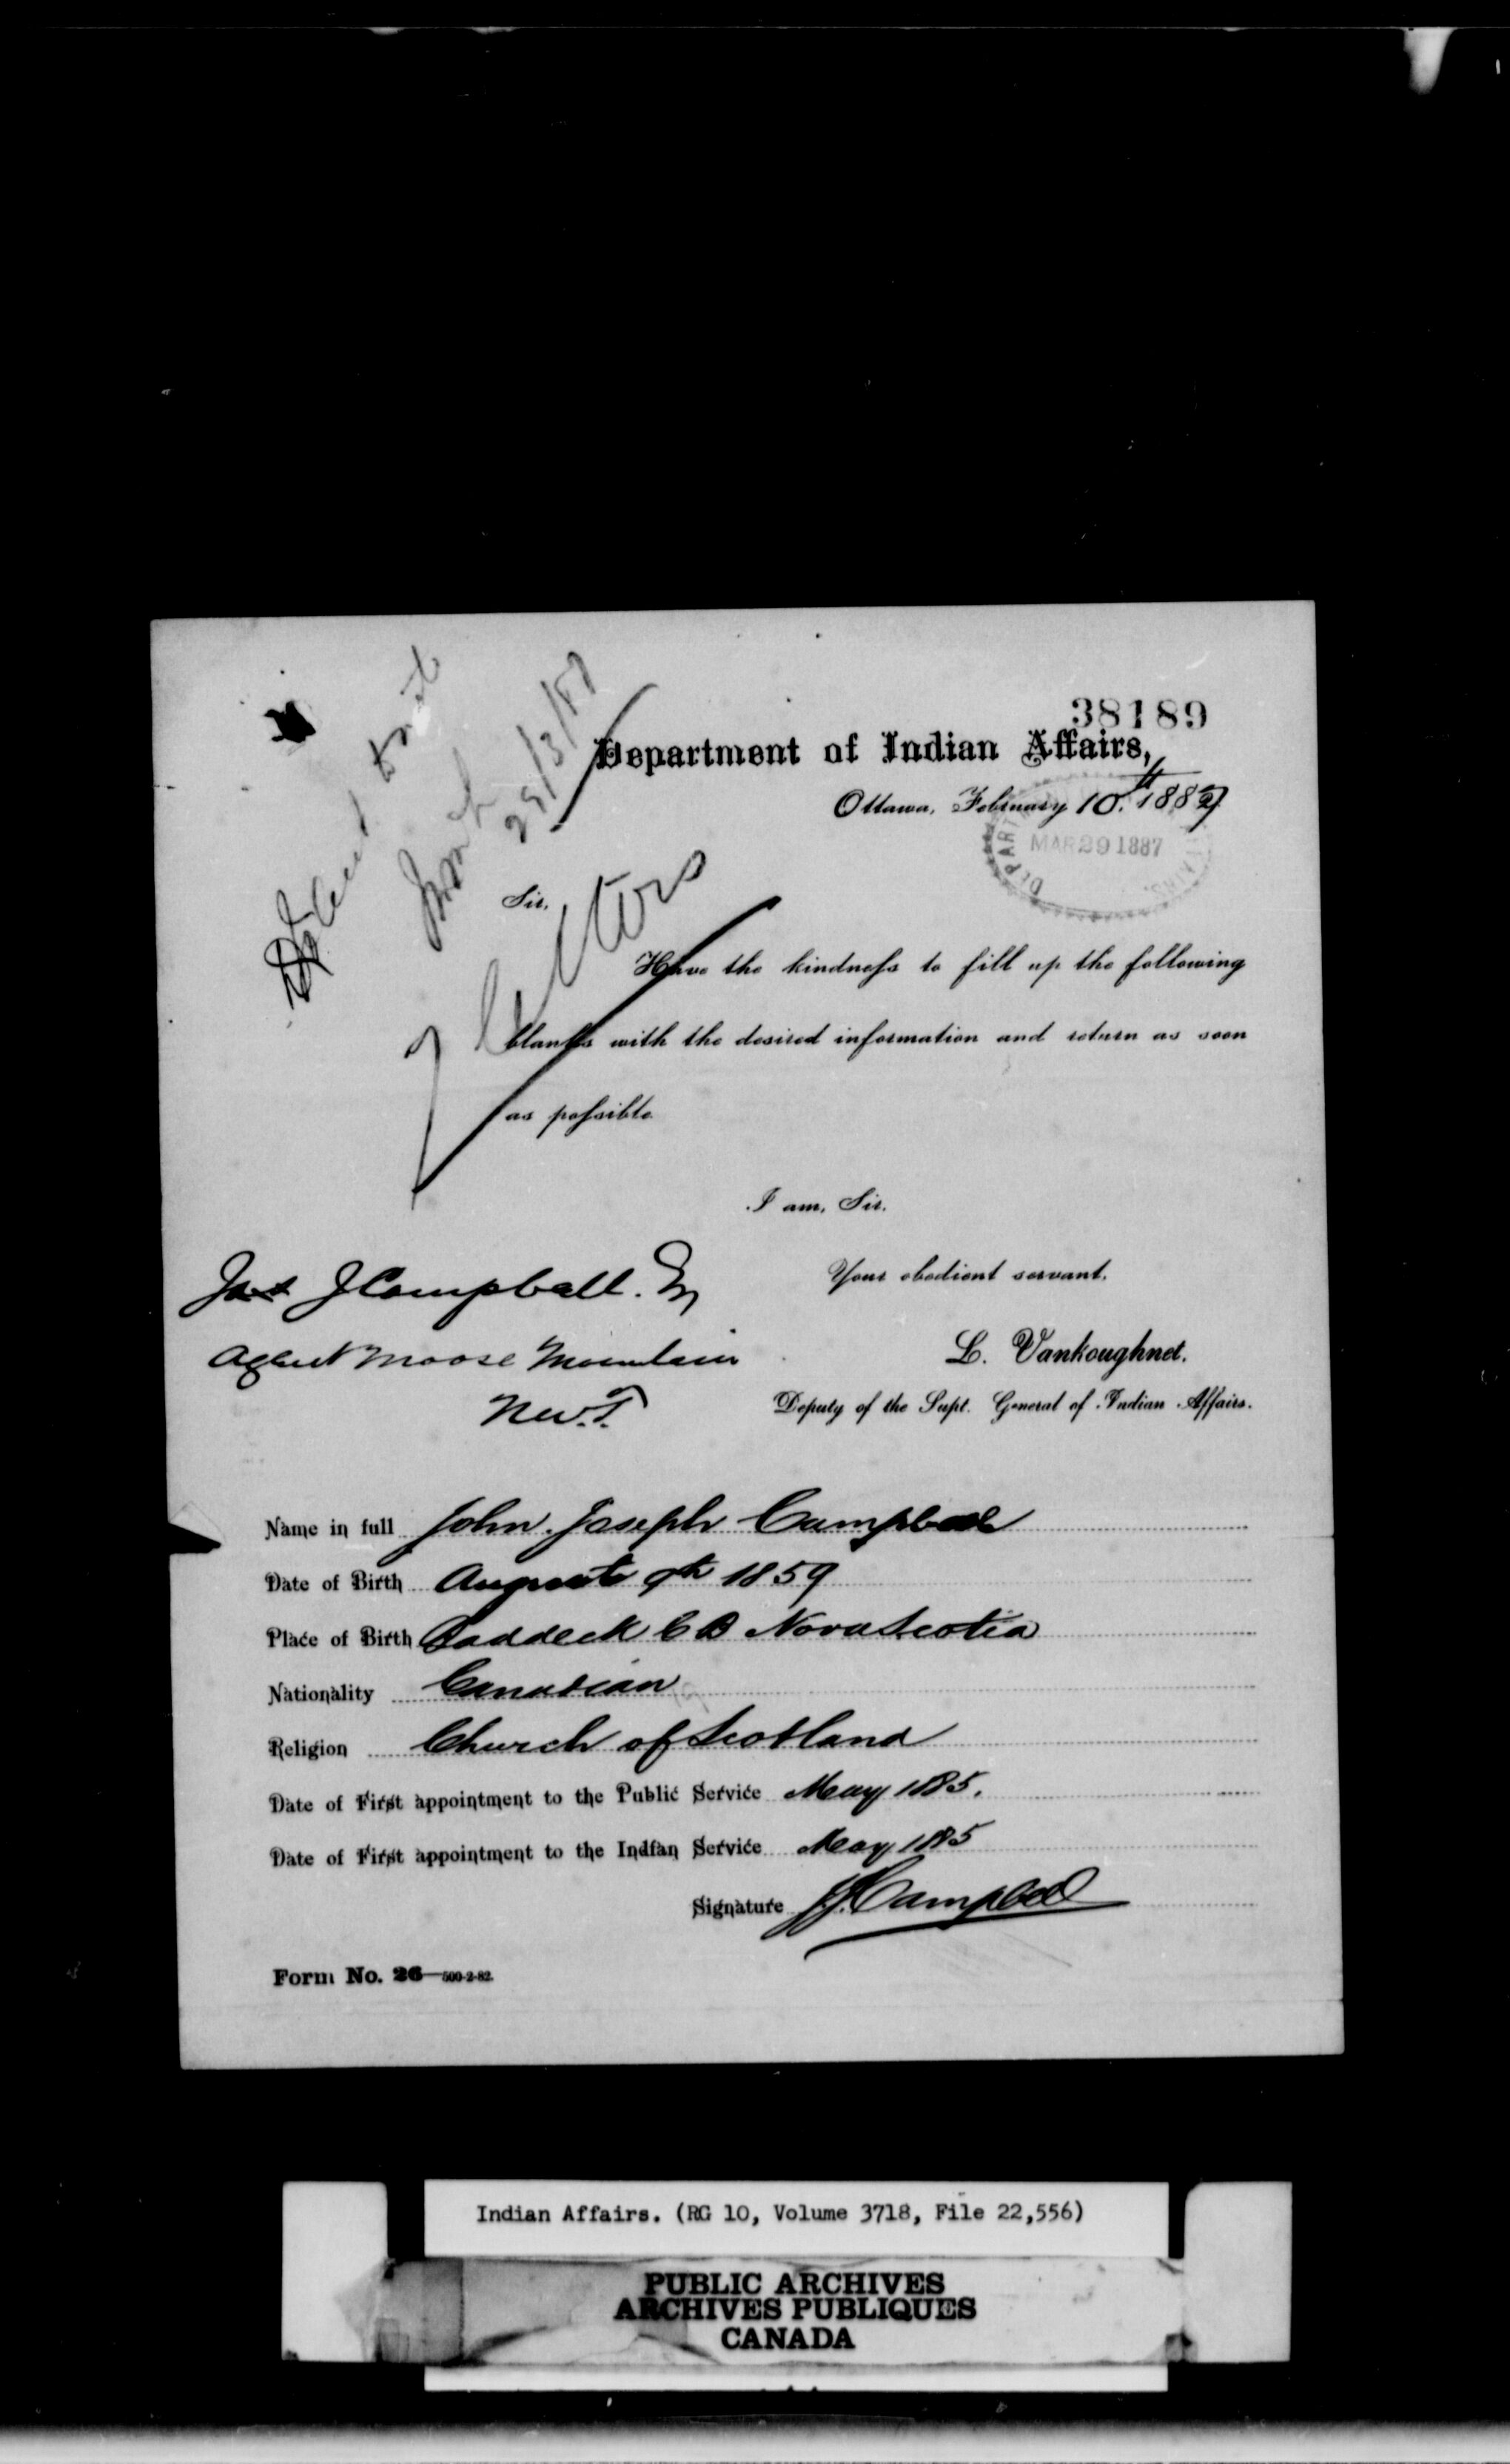 38189
Department of Indian Affairs,
Ottawa, February 10.th 1887
MAR 29 1887
29/3/87
Sir,
Letters
Have the kindness to fill up the following
blanks with the desired information and return as soon
as possible
I am, Sir,
Your obedient servant,
J Campbell. Esq
Agent Moose Mountain
N.W.T.
L. Vankoughnet.
Deputy of the Supt. General of Indian Affairs.
Name in full John Joseph Campbell
Date of Birth August 9th 1859
Place of Birth Baddeck C B Nova Scotia
Nationality Canadian
Religion Church of Scotland
Date of First appointment to the Public Service May 1885.
Date of First appointment to the Indian Service May 1885
Signature JJ Campbell
Form No. 26—500-2-82.
Indian Affairs. (RG 10, Volume 3718, File 22,556)
PUBLIC ARCHIVES
ARCHIVES PUBLIQUES
CANADA